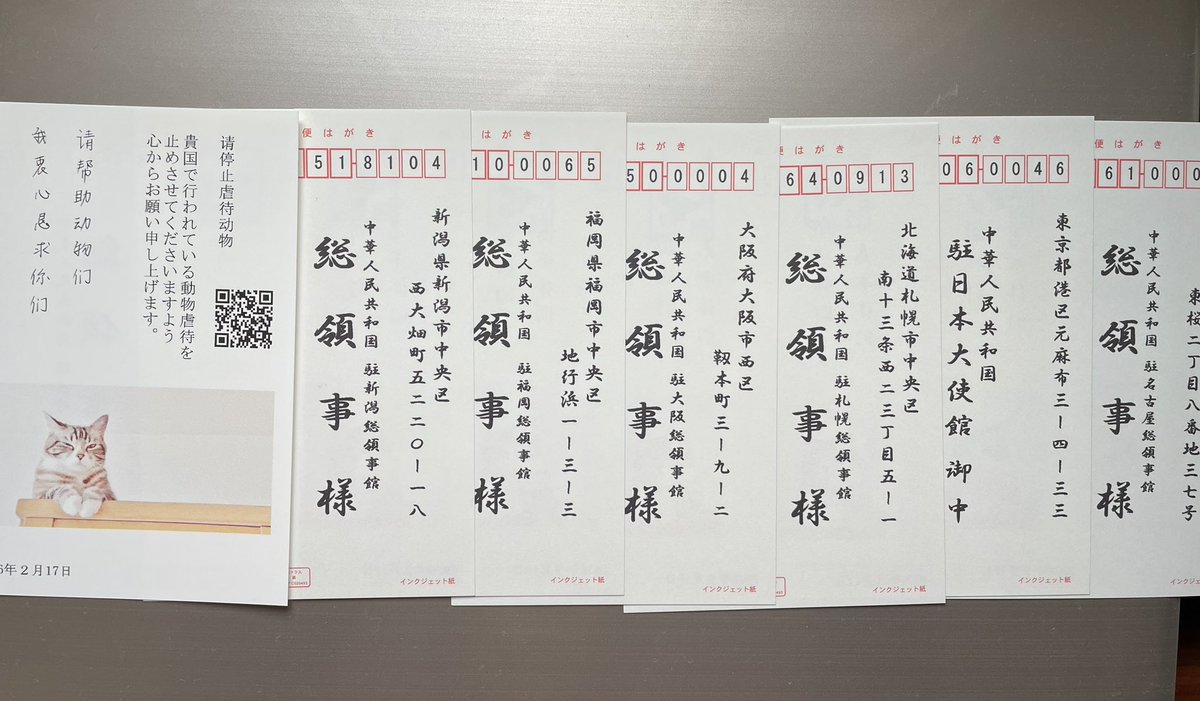 请停止虐待动物
貴国で行われている動物虐待を
止めさせてくださいますよう
心からお願い申し上げます。
请帮助动物们
我衷心恳求你们
6年2月17日
便はがき
518104
新潟県新潟市中央区
西大畑町五二二〇ー一八
中華人民共和国 駐新潟総領事館
総領事様
インクジェット紙
はがき
10-0065
福岡県福岡市中央区
地行浜一ー三ー三
中華人民共和国 駐福岡総領事館
総領事様
インクジェット紙
はがき
50-0004
大阪府大阪市西区
靱本町三ー九ー二
中華人民共和国 駐大阪総領事館
総領事様
インクジェット紙
便はがき
64-0913
北海道札幌市中央区
南十三条西二三丁目五ー一
中華人民共和国 駐札幌総領事館
総領事様
インクジェット紙
便はがき
06-0046
東京都港区元麻布三ー四ー三三
中華人民共和国
駐日本大使館 御中
インクジェット紙
便はがき
61-000
東桜二丁目八番地三七号
中華人民共和国 駐名古屋総領事館
総領事様
インクジェ